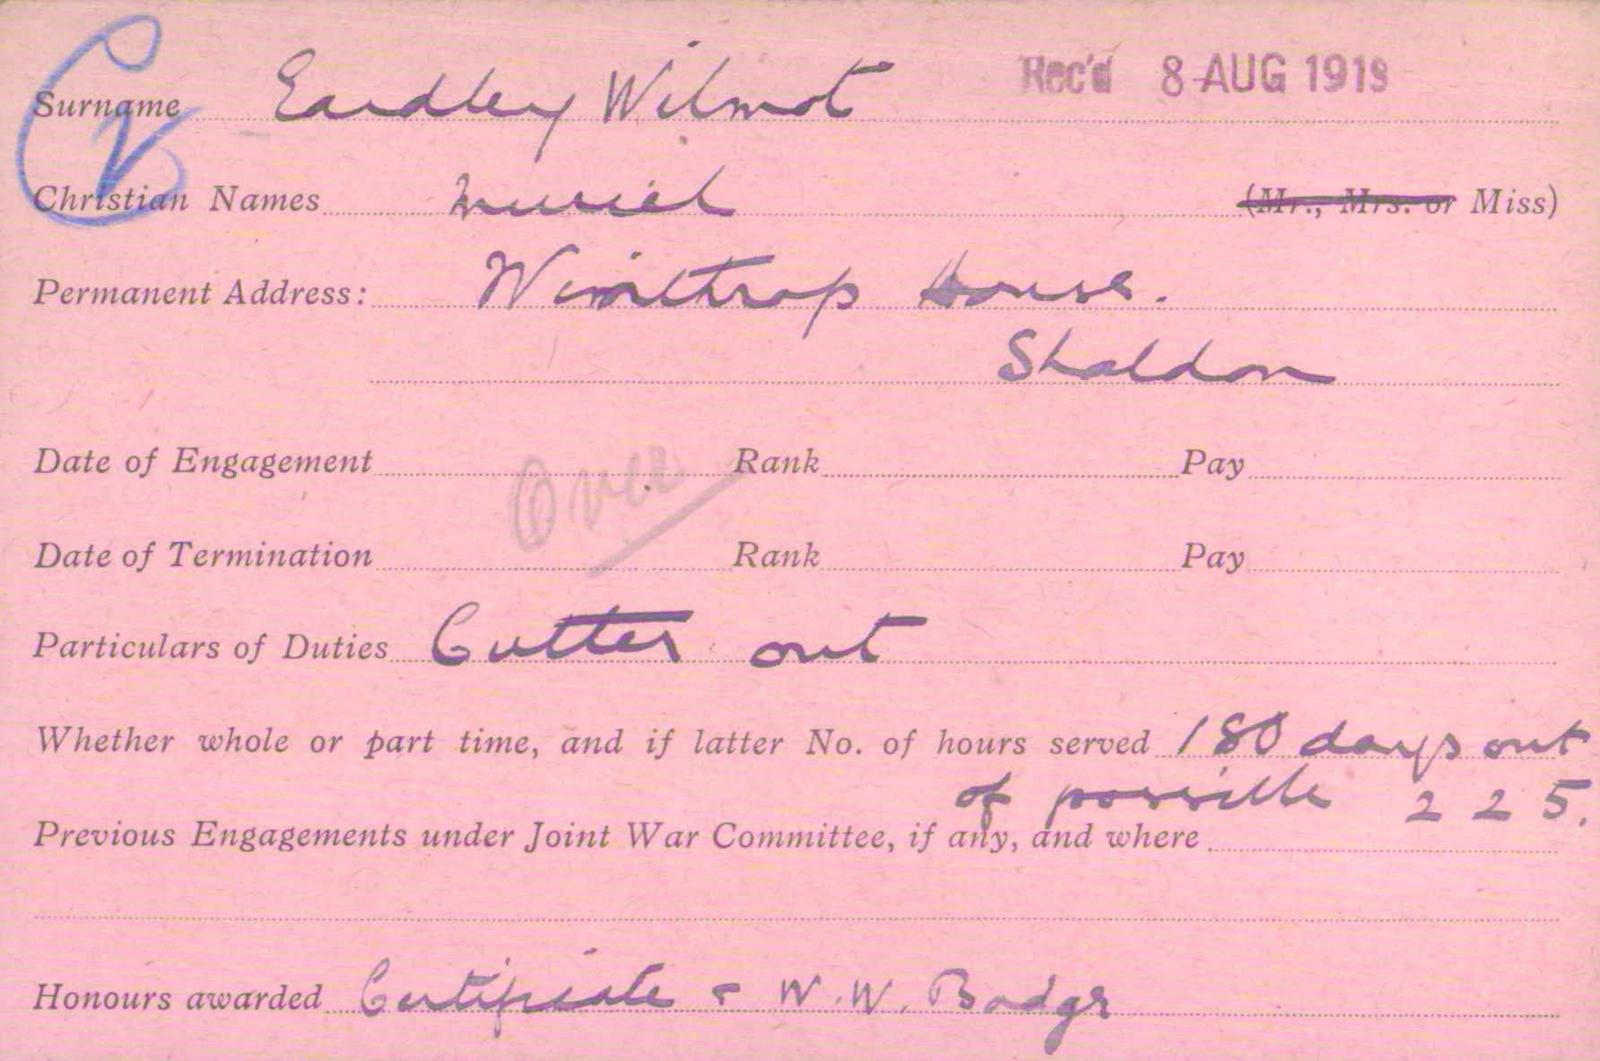 Surname Eardley Wilmot Rec'd 8 AUG 1919
Christian Names Muriel (Mr., Mrs. or Miss)
Permanent Address: Winthrop House.
Shaldon
Date of Engagement Rank Pay
Over
Date of Termination Rank Pay
Particulars of Duties Cutter out
Whether whole or part time, and if latter No. of hours served 180 days out
of possible 225.
Previous Engagements under Joint War Committee, if any, and where
Honours awarded Certificate & W.W. Badge